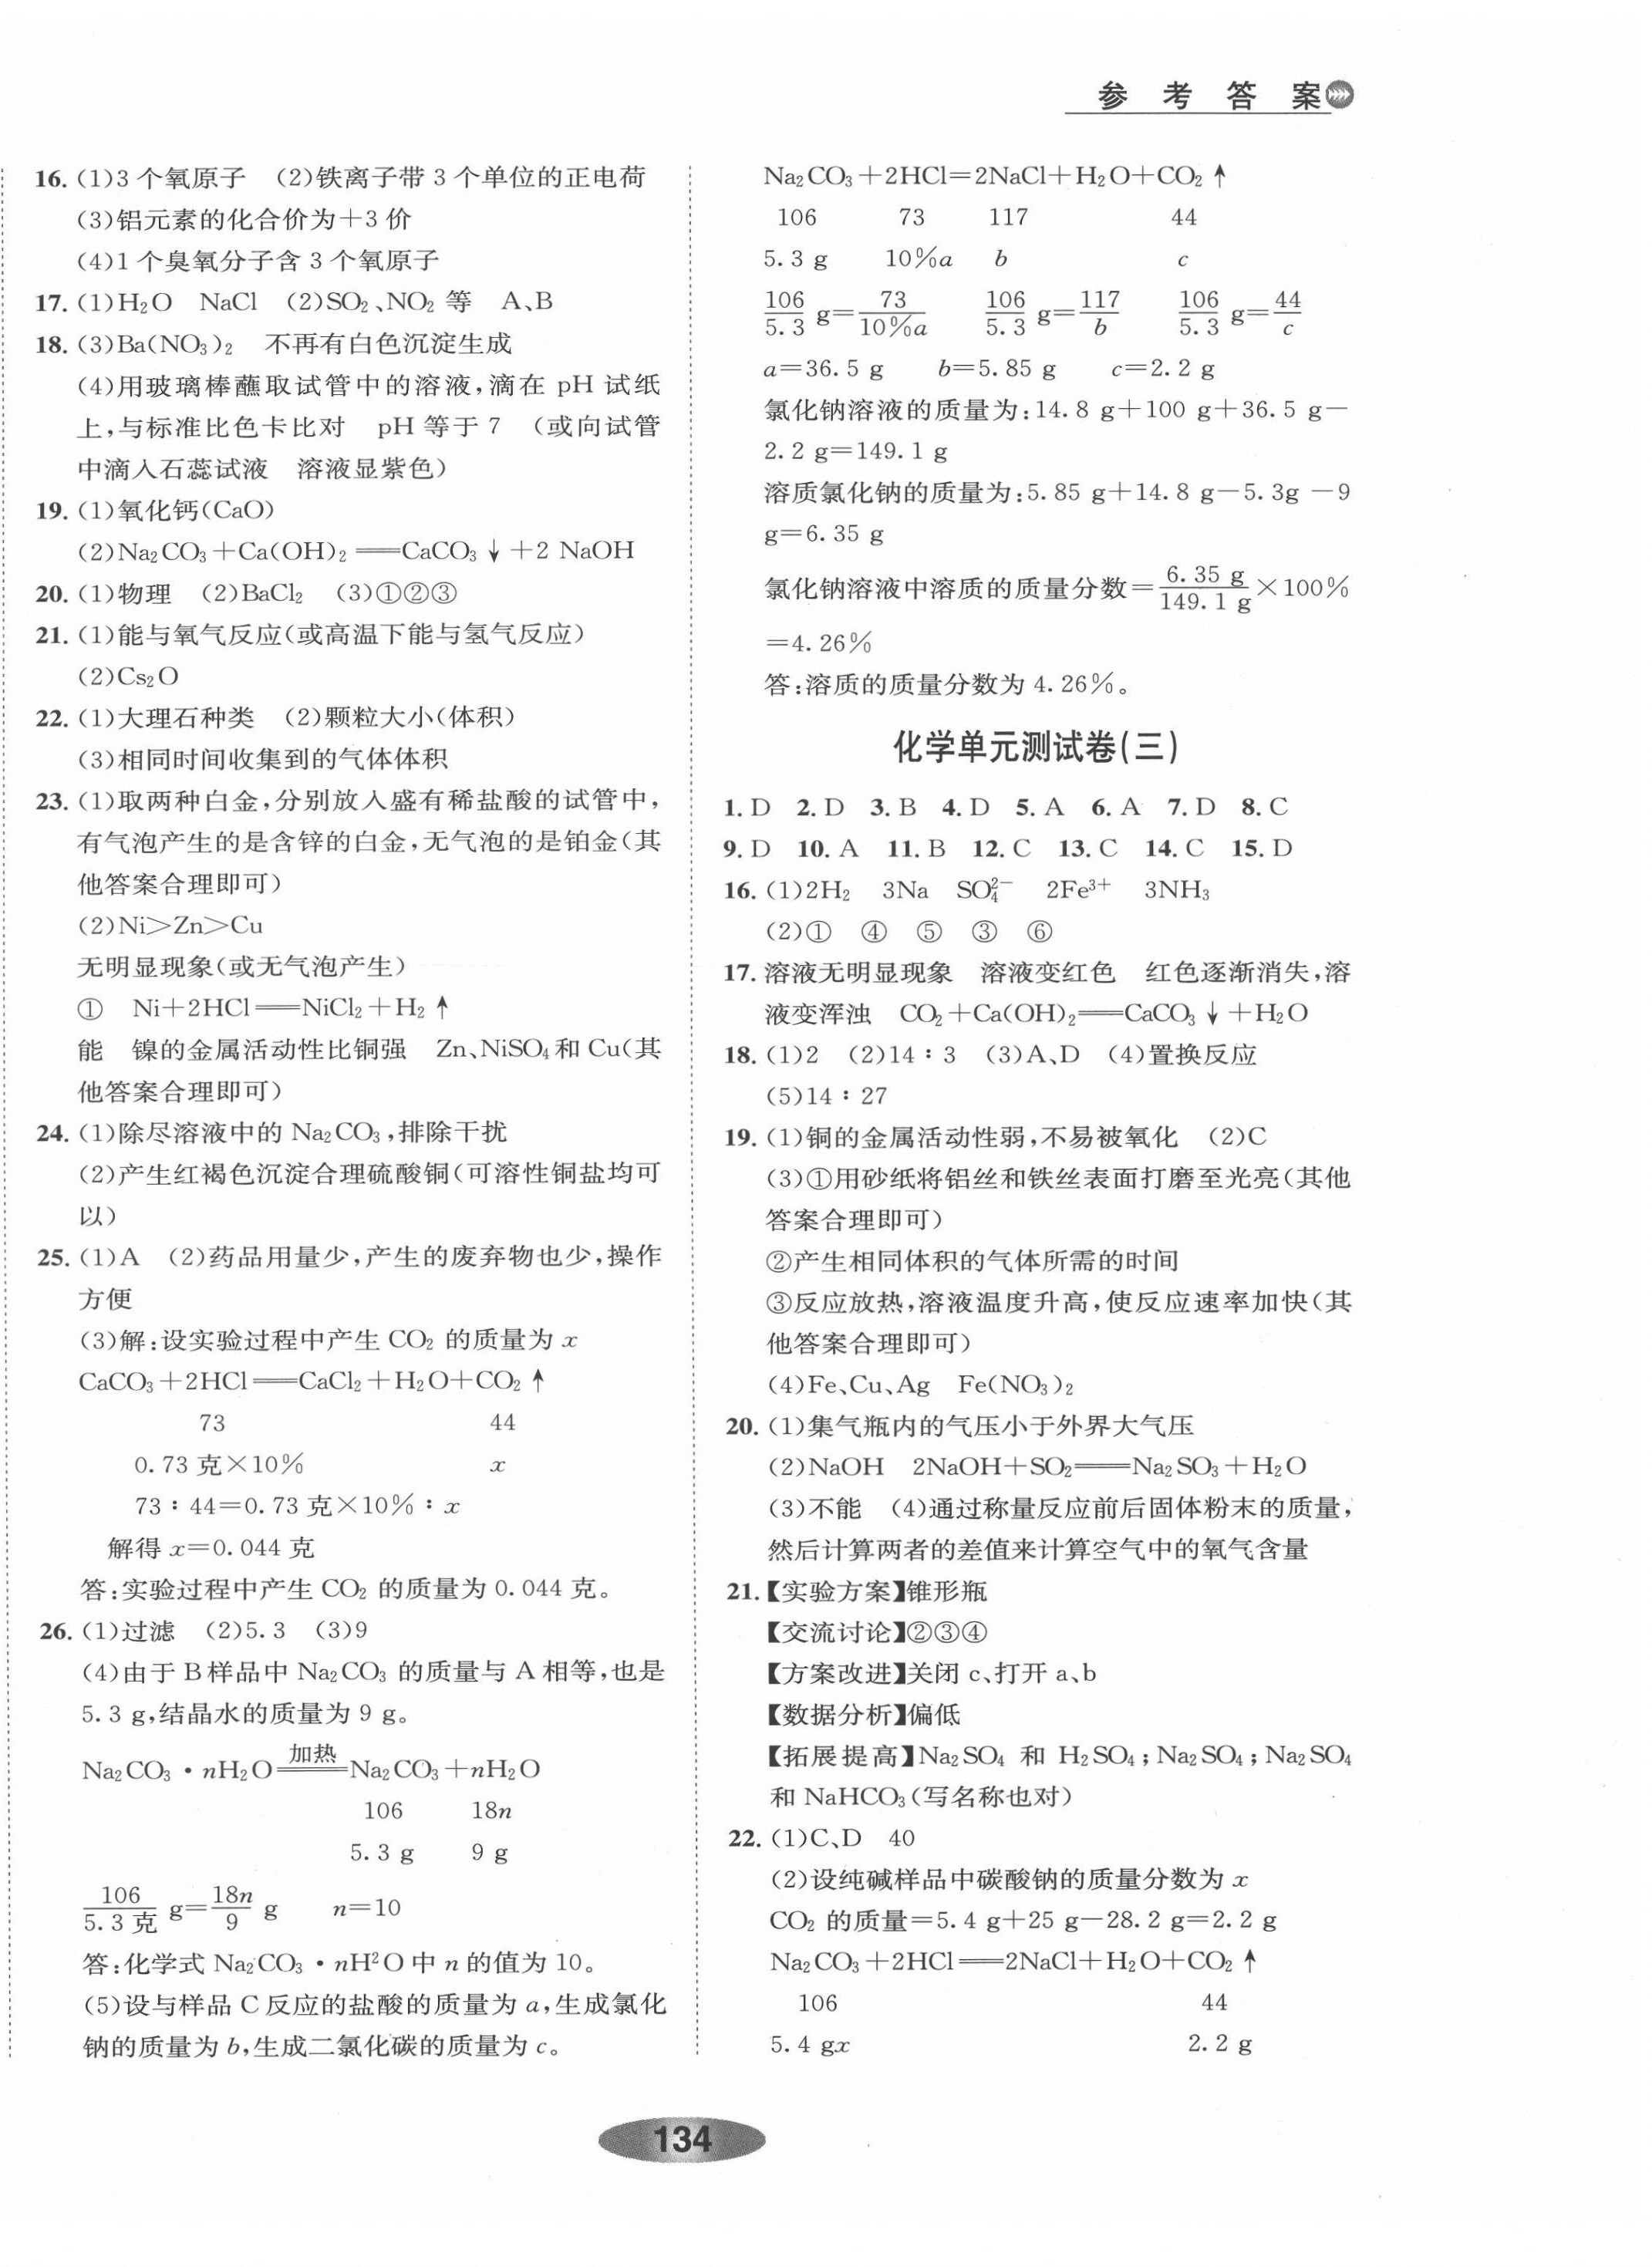 参 考 答 案
16. (1)3 个氧原子 (2)铁离子带 3 个单位的正电荷
(3)铝元素的化合价为+3 价
(4)1 个臭氧分子含 3 个氧原子
17. (1)H₂O NaCl (2)SO₂、NO₂ 等 A、B
18. (3)Ba(NO₃)₂ 不再有白色沉淀生成
(4)用玻璃棒蘸取试管中的溶液,滴在 pH 试纸
上,与标准比色卡比对 pH 等于 7 (或向试管
中滴入石蕊试液 溶液显紫色)
19. (1)氧化钙(CaO)
(2)Na₂CO₃+Ca(OH)₂══CaCO₃↓+2 NaOH
20. (1)物理 (2)BaCl₂ (3)①②③
21. (1)能与氧气反应(或高温下能与氢气反应)
(2)Cs₂O
22. (1)大理石种类 (2)颗粒大小(体积)
(3)相同时间收集到的气体体积
23. (1)取两种白金,分别放入盛有稀盐酸的试管中,
有气泡产生的是含锌的白金,无气泡的是铂金(其
他答案合理即可)
(2)Ni>Zn>Cu
无明显现象(或无气泡产生)
① Ni+2HCl══NiCl₂+H₂↑
能 镍的金属活动性比铜强 Zn、NiSO₄和 Cu(其
他答案合理即可)
24. (1)除尽溶液中的 Na₂CO₃,排除干扰
(2)产生红褐色沉淀合理硫酸铜(可溶性铜盐均可
以)
25. (1)A (2)药品用量少,产生的废弃物也少,操作
方便
(3)解:设实验过程中产生 CO₂ 的质量为 x
CaCO₃+2HCl══CaCl₂+H₂O+CO₂↑
73 44
0.73 克×10% x
73∶44=0.73 克×10%∶x
解得 x=0.044 克
答:实验过程中产生 CO₂ 的质量为 0.044 克。
26. (1)过滤 (2)5.3 (3)9
(4)由于 B 样品中 Na₂CO₃ 的质量与 A 相等,也是
5.3 g,结晶水的质量为 9 g。
Na₂CO₃·nH₂O══加热══Na₂CO₃+nH₂O
106 18n
5.3 g 9 g
106/5.3 克 g=18n/9 g n=10
答:化学式 Na₂CO₃·nH²O 中 n 的值为 10。
(5)设与样品 C 反应的盐酸的质量为 a,生成氯化
钠的质量为 b,生成二氯化碳的质量为 c。
Na₂CO₃+2HCl=2NaCl+H₂O+CO₂↑
106 73 117 44
5.3 g 10%a b c
106/5.3 g=73/10%a 106/5.3 g=117/b 106/5.3 g=44/c
a=36.5 g b=5.85 g c=2.2 g
氯化钠溶液的质量为:14.8 g+100 g+36.5 g−
2.2 g=149.1 g
溶质氯化钠的质量为:5.85 g+14.8 g−5.3g −9
g=6.35 g
氯化钠溶液中溶质的质量分数=6.35 g/149.1 g×100%
=4.26%
答:溶质的质量分数为 4.26%。
化学单元测试卷(三)
1. D 2. D 3. B 4. D 5. A 6. A 7. D 8. C
9. D 10. A 11. B 12. C 13. C 14. C 15. D
16. (1)2H₂ 3Na SO₄²⁻ 2Fe³⁺ 3NH₃
(2)① ④ ⑤ ③ ⑥
17. 溶液无明显现象 溶液变红色 红色逐渐消失,溶
液变浑浊 CO₂+Ca(OH)₂══CaCO₃↓+H₂O
18. (1)2 (2)14∶3 (3)A、D (4)置换反应
(5)14∶27
19. (1)铜的金属活动性弱,不易被氧化 (2)C
(3)①用砂纸将铝丝和铁丝表面打磨至光亮(其他
答案合理即可)
②产生相同体积的气体所需的时间
③反应放热,溶液温度升高,使反应速率加快(其
他答案合理即可)
(4)Fe、Cu、Ag Fe(NO₃)₂
20. (1)集气瓶内的气压小于外界大气压
(2)NaOH 2NaOH+SO₂══Na₂SO₃+H₂O
(3)不能 (4)通过称量反应前后固体粉末的质量,
然后计算两者的差值来计算空气中的氧气含量
21.【实验方案】锥形瓶
【交流讨论】②③④
【方案改进】关闭 c、打开 a、b
【数据分析】偏低
【拓展提高】Na₂SO₄ 和 H₂SO₄;Na₂SO₄;Na₂SO₄
和 NaHCO₃(写名称也对)
22. (1)C、D 40
(2)设纯碱样品中碳酸钠的质量分数为 x
CO₂ 的质量=5.4 g+25 g−28.2 g=2.2 g
Na₂CO₃+2HCl══2NaCl+H₂O+CO₂↑
106 44
5.4 gx 2.2 g
134